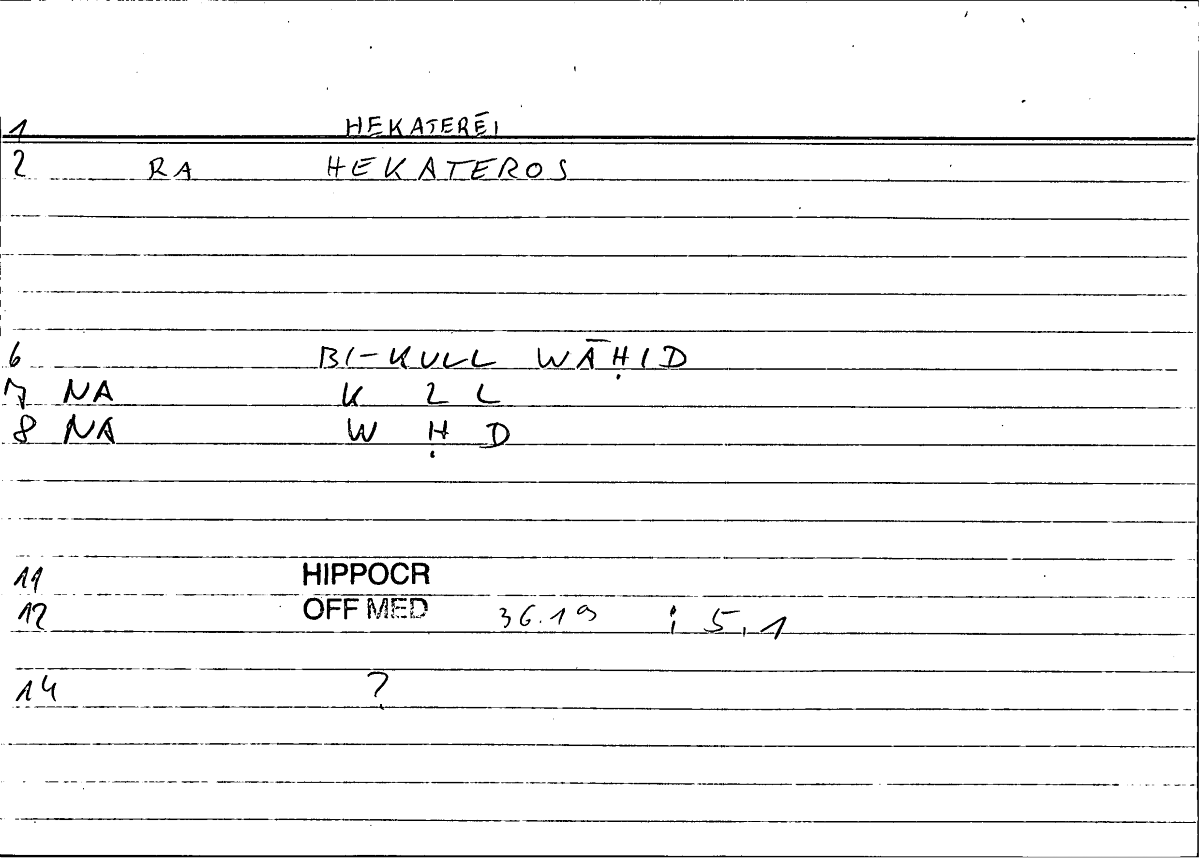 1 HEKATERĒI
2 RA HEKATEROS
6 BI-KULL WĀḤID
7 NA K 2 L
8 NA W Ḥ D
11 HIPPOCR
12 OFF MED 36.19 ; 5,1
14 ?